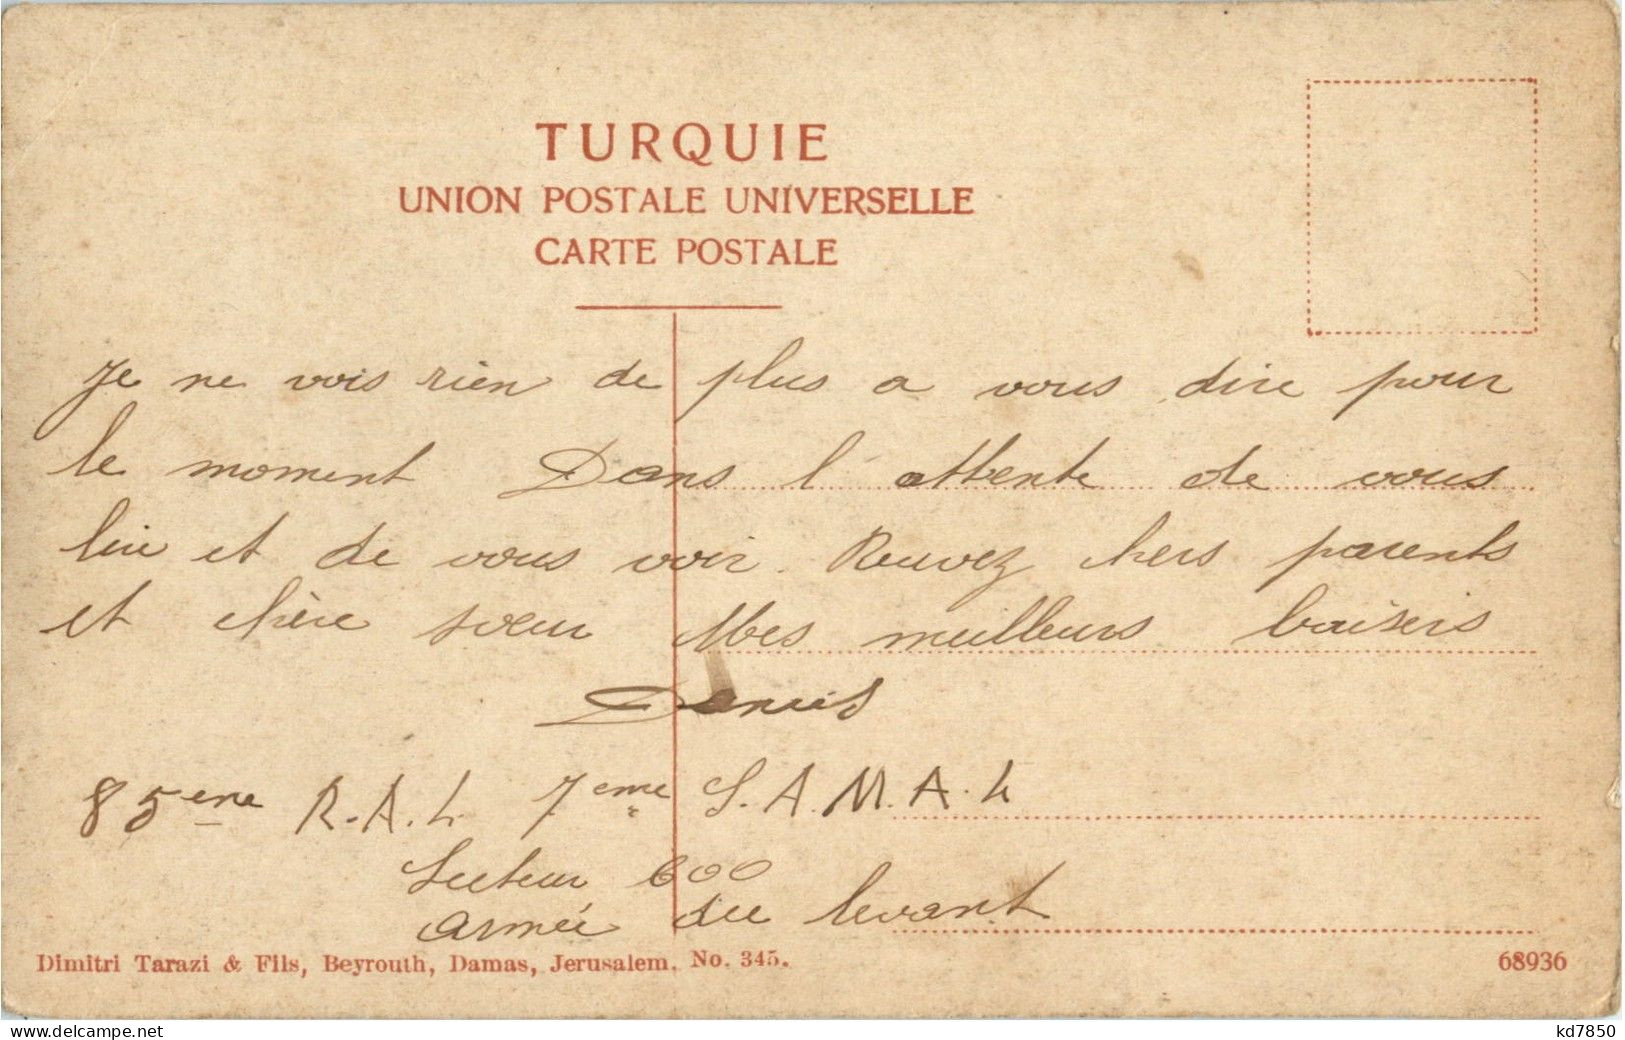 TURQUIE
UNION POSTALE UNIVERSELLE
CARTE POSTALE
Je ne vois rien de plus a vous dire pour
le moment Dans l'attente de vous
lire et de vous voir. Recevez chers parents
et chère sœur Mes meilleurs baisers
Denis
85eme R.A.L. 7eme S.A.M.A.L
Secteur 600
Armée du levant
Dimitri Tarazi & Fils, Beyrouth, Damas, Jerusalem. No. 345.
68936
kd7850
www.delcampe.net